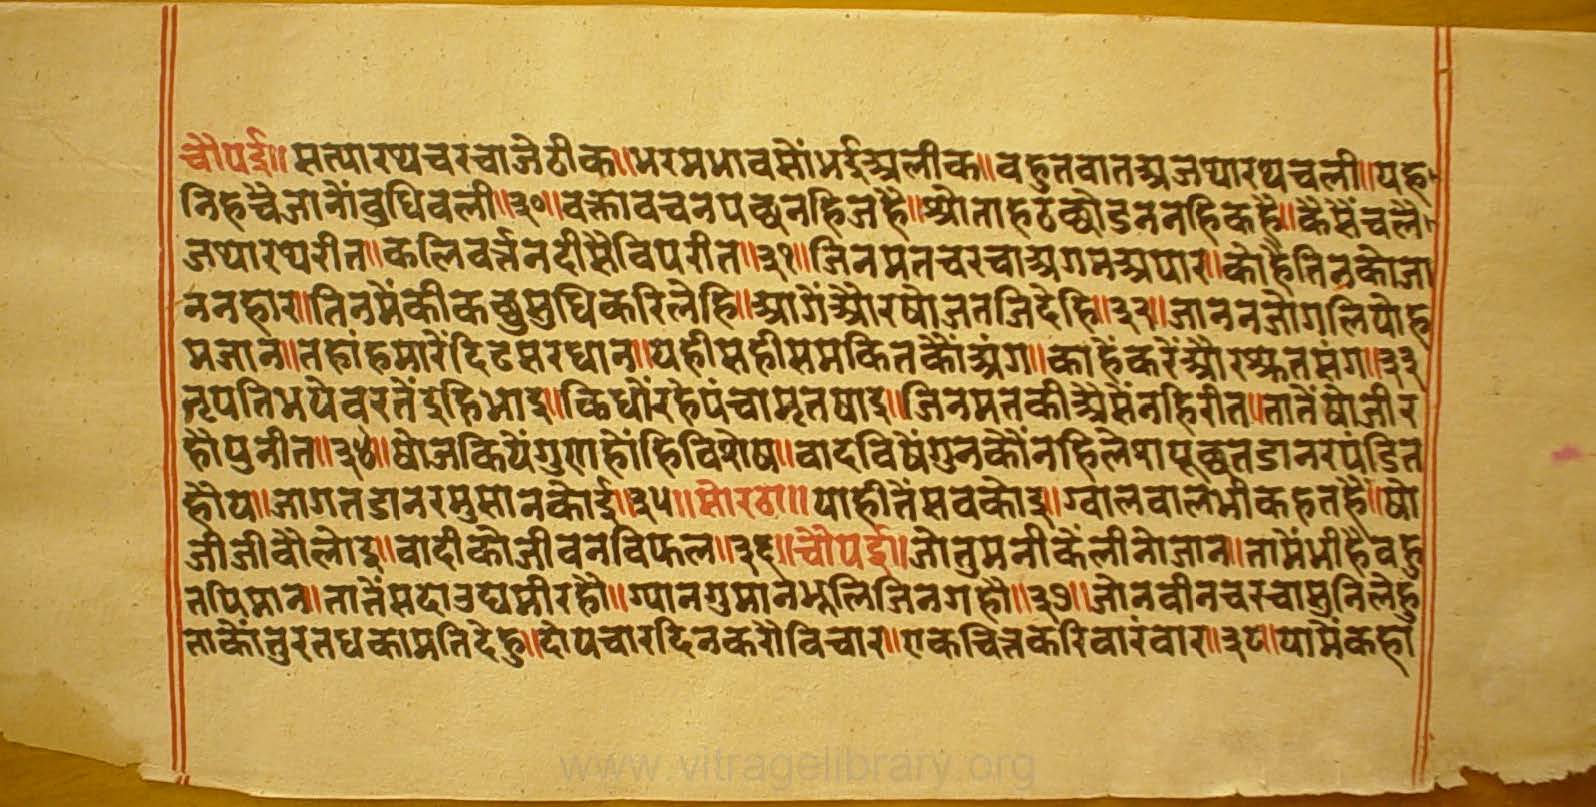 चौपई॥ सत्यारथचरचाजेठीक॥भरमभावसोंभईअलीक॥बहुतवातअजथारथचली॥यह
निहचैजानोंवुधिवली॥३०॥वक्तावचनपछनहिजहै॥श्रोताहठछोडननहिकहै॥कैसेंचलै
जथारथरीत॥कलिवर्त्तनदीसैविपरीत॥३१॥जिनमतचरचाअगमअपार॥कोहैतिनकोजा
ननहार॥तिनमेंकीकछुसुधिकरिलेहि॥आगेंऔरषोजतजिदेहि॥३२॥जाननजोगलियोह
मजान॥तहांहमारेंदिढसरधान॥यहीसहीसमकितकौंअंग॥काहेंकरेंऔरश्रुतसंग॥३३
नृपतिभयेवरतेंइहिभाइ॥छिधौंरहेपंचामृतषाइ॥जिनमतकीअैसेंनहिरीत॥तातेंषोजीर
हौपुनीत॥३४॥षोजकियेंगुणहोंहिविशेष॥वादविषेंगुनकौंनहिलेशपूछतडानरपंडित
होय॥जागतडानरमुसानकोई॥३५॥सोरठा॥ याहीतेंसवकोइ॥ग्वालवालभीकहतहैं॥षो
जीजीवौलोइ॥वादीकोजीवनविफल॥३६॥चौपई॥जोतुमनीकेंलीनोजान॥तामेंभीहैवहु
तपिमान॥तातेंसदाउद्यमीरहौ॥ग्यानगुमानभूलिजिनगहौ॥३७॥जोनवीनचरचासुनिलेहु
ताकोंतुरतधकामतिदेहु॥दोयचारदिनकरौविचार॥एकचित्तकरिवारंवार॥३८॥यामेंकहा
www.vitragelibrary.org